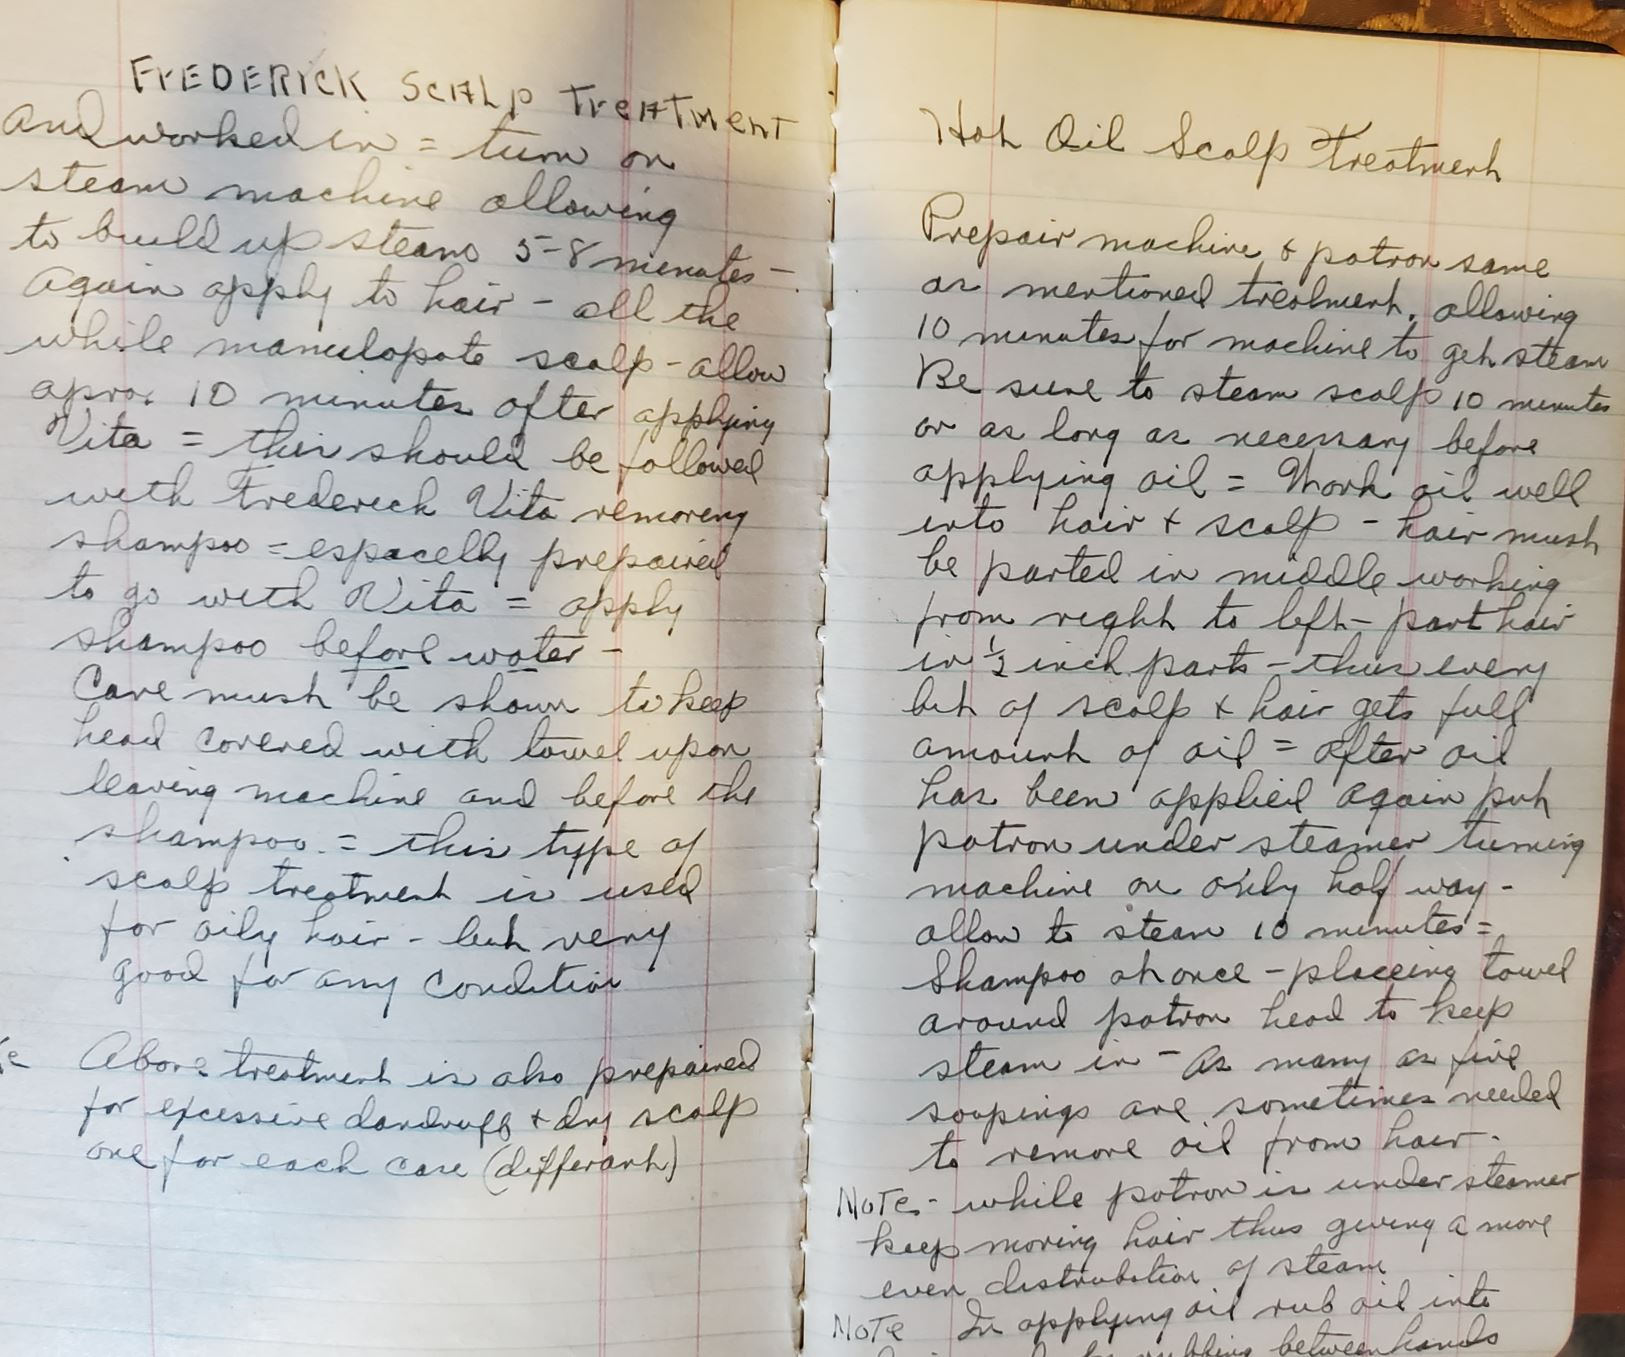 FrEDERICK SCALP TreATMenT
and worked in = turn on
steam machine allowing
to build up steam 5-8 minutes -
Again apply to hair - all the
while manulopate scalp - allow
aprox. 10 minutes after applying
Vita = this should be followed
with Frederick Vita removing
shampoo = espacelly prepaired
to go with Vita = apply
shampoo before water -
Care must be shown to keep
head covered with towel upon
leaving machine and before the
shampoo. = this type of
scalp treatment is used
for oily hair - but very
good for any condition
Above treatment is also prepaired
for excessive dandruff + dry scalp
one for each case (differant)
Hot Oil Scalp Treatment
Prepair machine & patron same
as mentioned treatment, allowing
10 minutes for machine to get steam
Be sure to steam scalp 10 minutes
or as long as necessary before
applying oil = Work oil well
into hair + scalp - hair must
be parted in middle working
from right to left - part hair
in ½ inch parts - thus every
bit of scalp + hair gets full
amount of oil = after oil
has been applied again put
patron under steamer turning
machine on only half way -
allow to steam 10 minutes =
Shampoo at once - placeing towel
around patron head to keep
steam in - As many as five
soapings are sometimes needed
to remove oil from hair.
NoTe - while patron is under steamer
keep moving hair thus giving a more
even distrubution of steam
NoTe In applying oil rub oil into
rubbing between hands